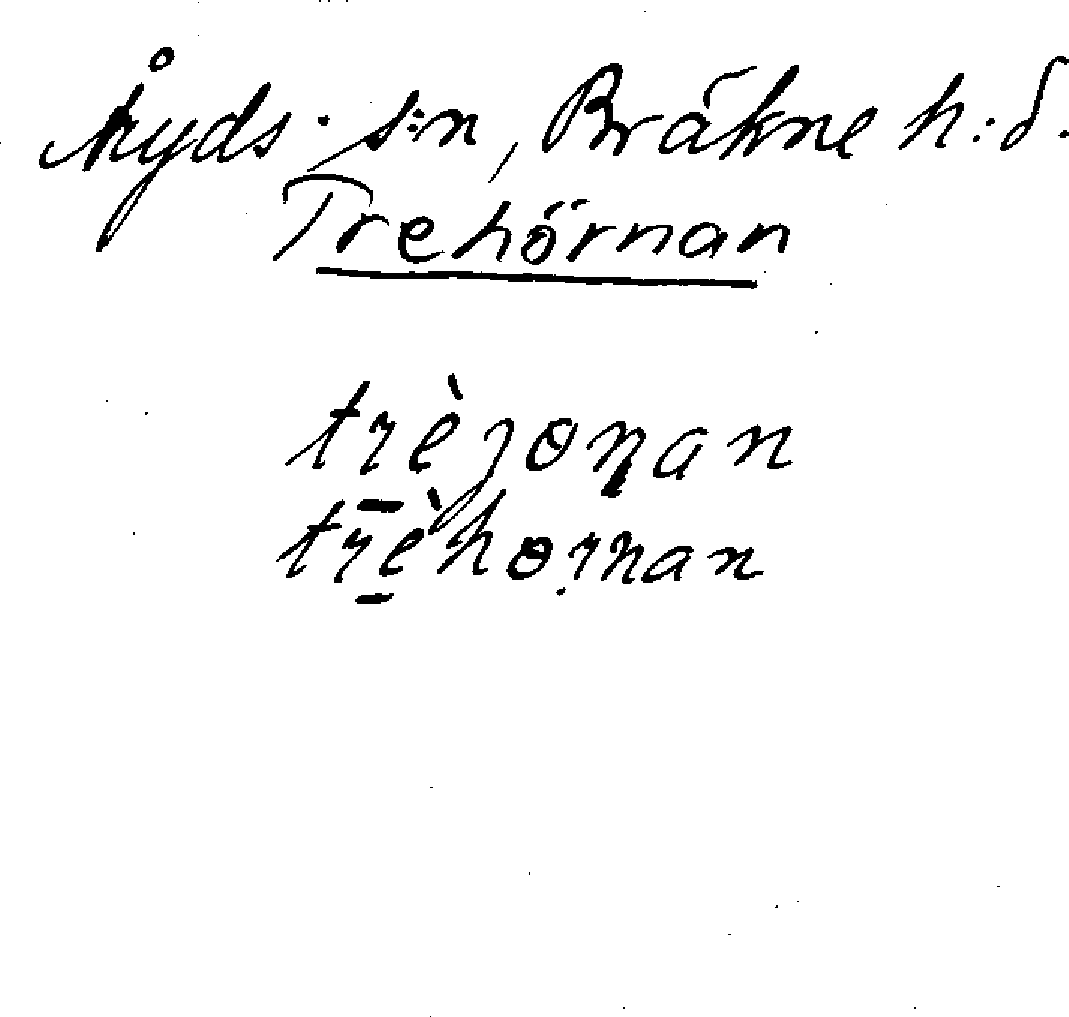 Åryds s:n, Bräkne h:d.
Trehörnan
trèjoṇan
trèhornan